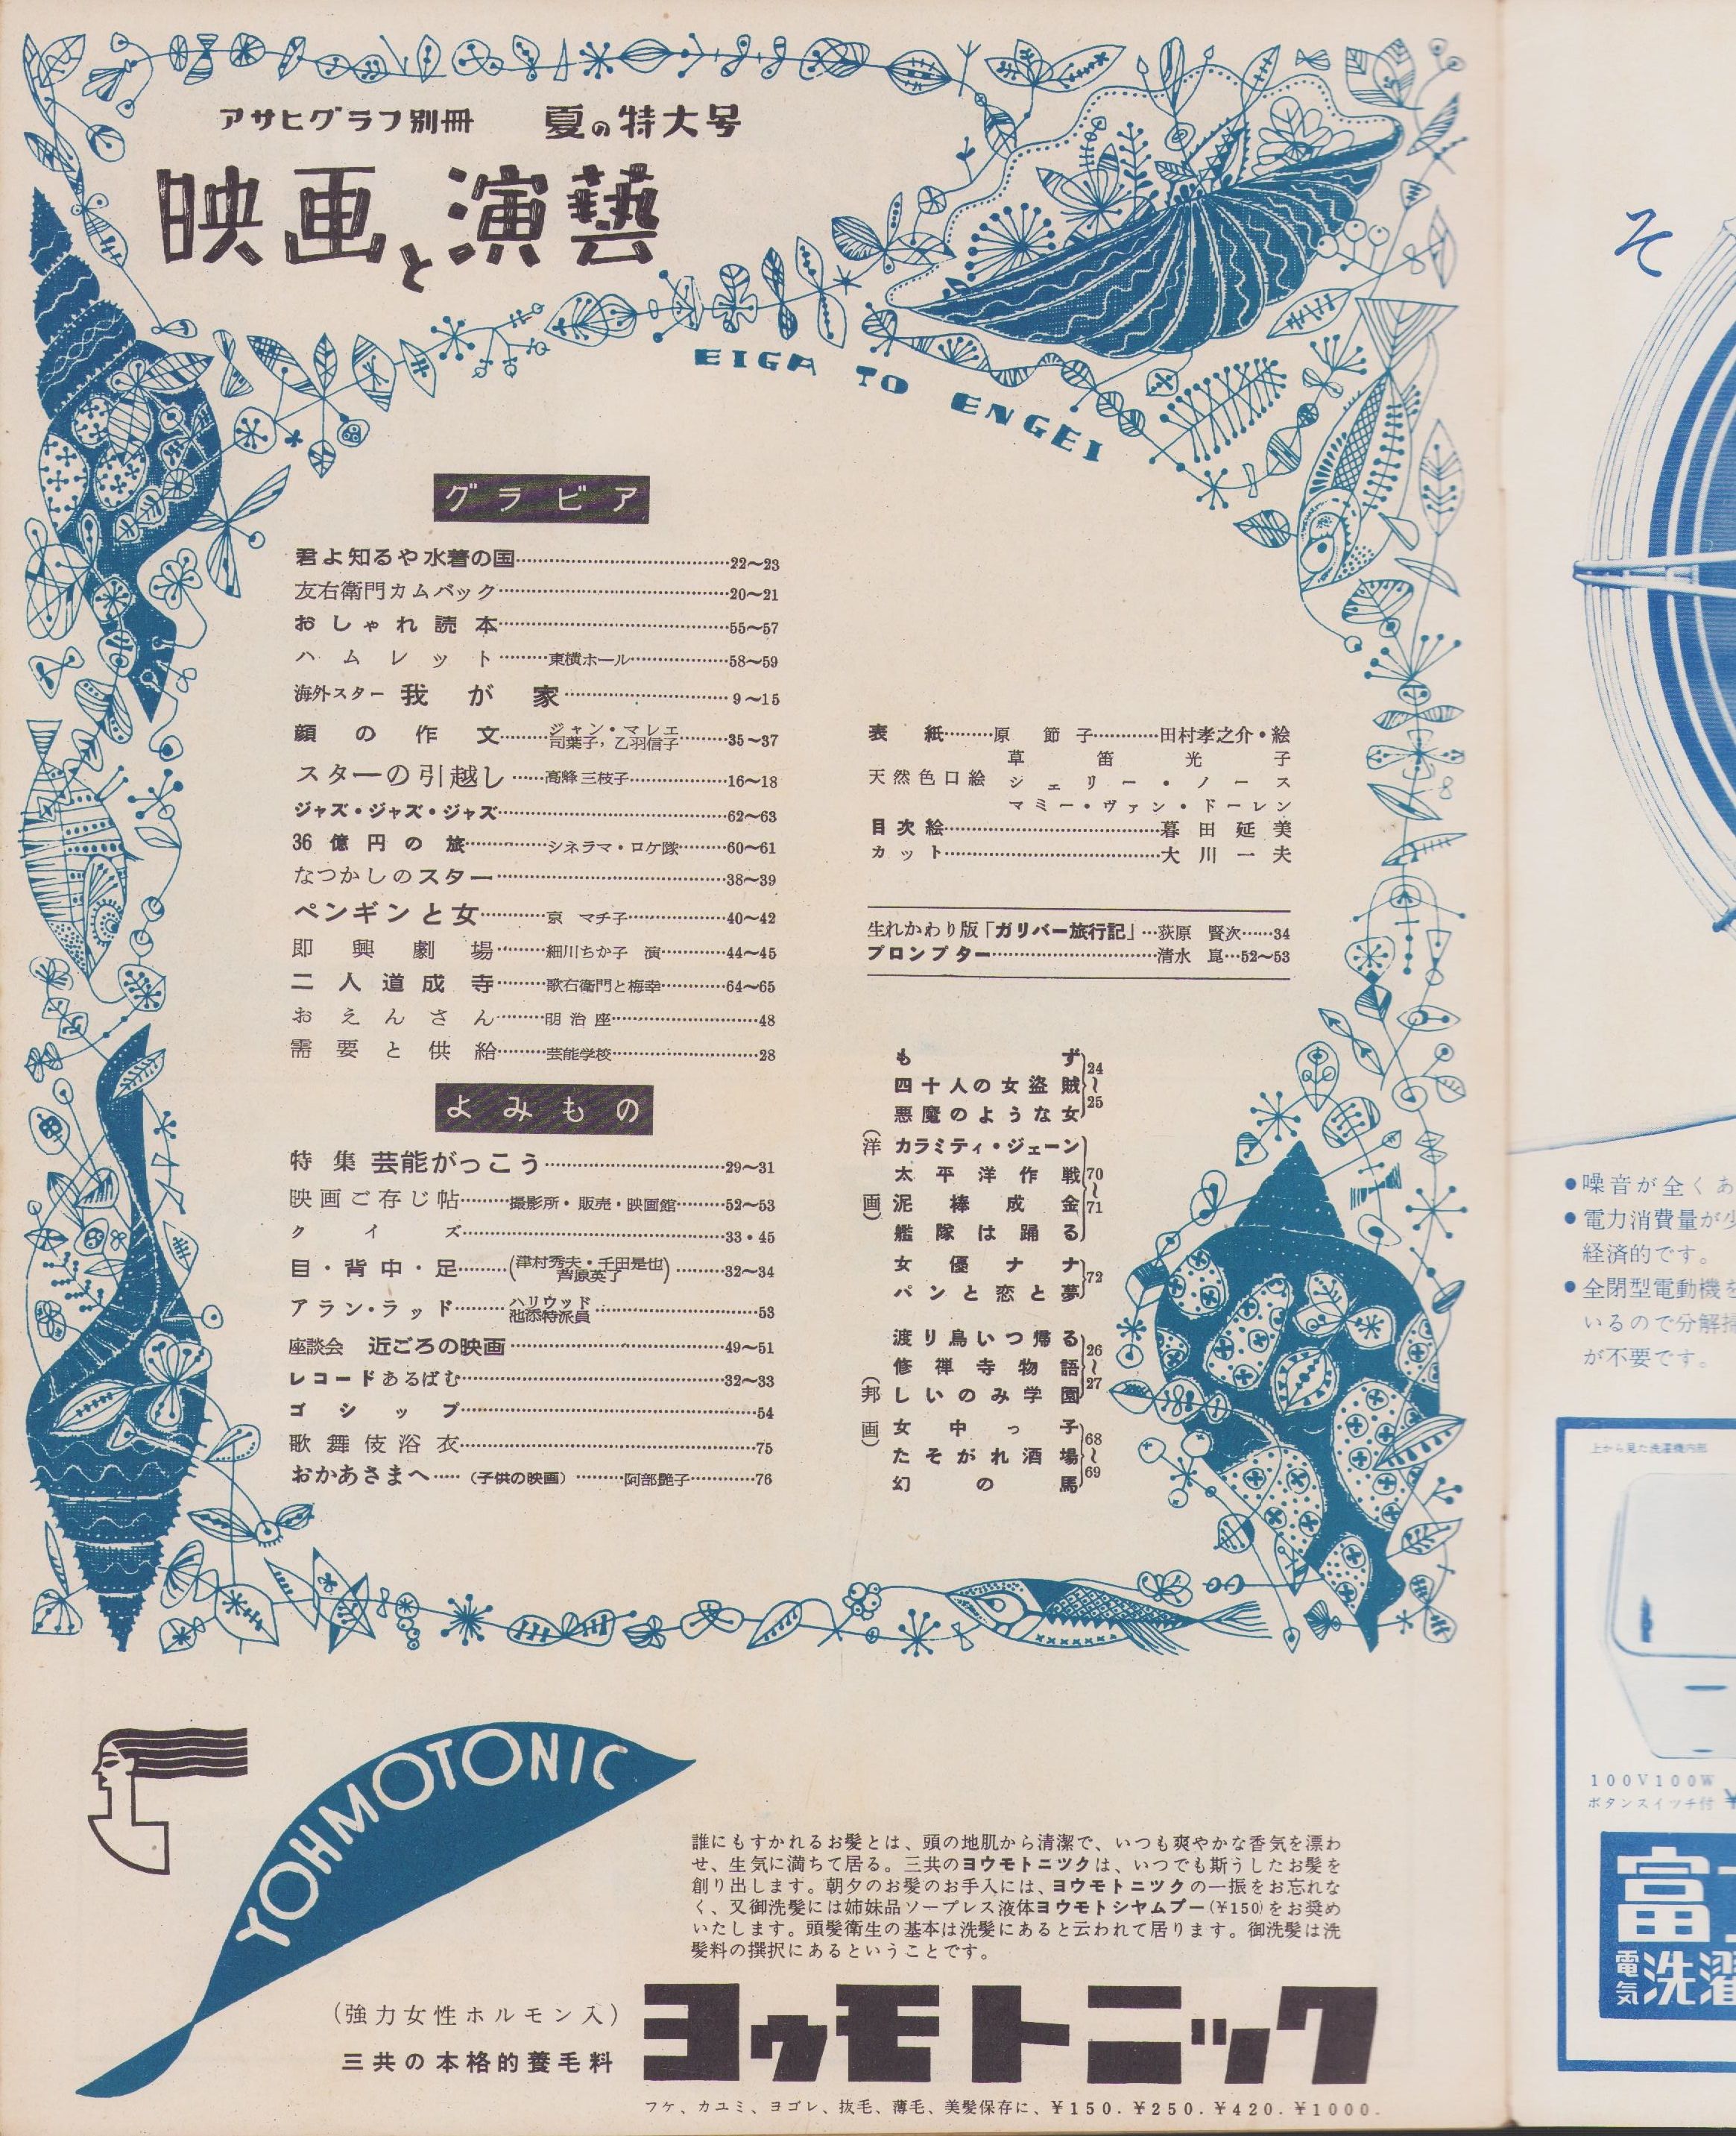 アサヒグラフ別冊 夏の特大号
映画と演藝
EIGA TO ENGEI
グラビア
君よ知るや水着の国……22〜23
友右衛門カムバック……20〜21
おしゃれ読本……55〜57
ハムレット……東横ホール……58〜59
海外スター 我が家……9〜15
顔の作文……ジャン・マレエ 司葉子，乙羽信子……35〜37
スターの引越し……高峰三枝子……16〜18
ジャズ・ジャズ・ジャズ……62〜63
36億円の旅……シネラマ・ロケ隊……60〜61
なつかしのスター……38〜39
ペンギンと女……京 マチ子……40〜42
即興劇場……細川ちか子 演……44〜45
二人道成寺……歌右衛門と梅幸……64〜65
おえんさん……明治座……48
需要と供給……芸能学校……28
よみもの
特集 芸能がっこう……29〜31
映画ご存じ帖……撮影所・販売・映画館……52〜53
クイズ……33・45
目・背中・足……(津村秀夫・千田是也 芦原英了)……32〜34
アラン・ラッド……ハリウッド 池添特派員……53
座談会 近ごろの映画……49〜51
レコードあるばむ……32〜33
ゴシップ……54
歌舞伎浴衣……75
おかあさまへ……（子供の映画）……阿部艶子……76
表紙……原節子……田村孝之介・絵
天然色口絵
草笛光子
シェリー・ノース
マミー・ヴァン・ドーレン
目次絵……暮田延美
カット……大川一夫
生れかわり版「ガリバー旅行記」…荻原 賢次……34
プロンプター……清水 崑…52〜53
（洋画）
もず
四十人の女盗賊
悪魔のような女
24〜25
カラミティ・ジェーン
太平洋作戦
泥棒成金
艦隊は踊る
70〜71
女優ナナ
パンと恋と夢
72
（邦画）
渡り鳥いつ帰る
修禅寺物語
しいのみ学園
26〜27
女中っ子
たそがれ酒場
幻の馬
68〜69
YOHMOTONIC
誰にもすかれるお髪とは、頭の地肌から清潔で、いつも爽やかな香気を漂わ
せ、生気に満ちて居る。三共のヨウモトニツクは、いつでも斯うしたお髪を
創り出します。朝夕のお髪のお手入には、ヨウモトニツクの一振をお忘れな
く、又御洗髪には姉妹品ソープレス液体ヨウモトシヤムプー(¥150)をお奨め
いたします。頭髪衛生の基本は洗髪にあると云われて居ります。御洗髪は洗
髪料の撰択にあるということです。
（強力女性ホルモン入）
三共の本格的養毛料
ヨウモトニック
フケ、カユミ、ヨゴレ、抜毛、薄毛、美髪保存に、¥150. ¥250. ¥420. ¥1000.
そ
●噪音が全くあ
●電力消費量が少
経済的です。
●全閉型電動機を
いるので分解掃
が不要です。
上から見た洗濯機内部
100V100W
ボタンスイッチ付 ¥
富
電気洗濯